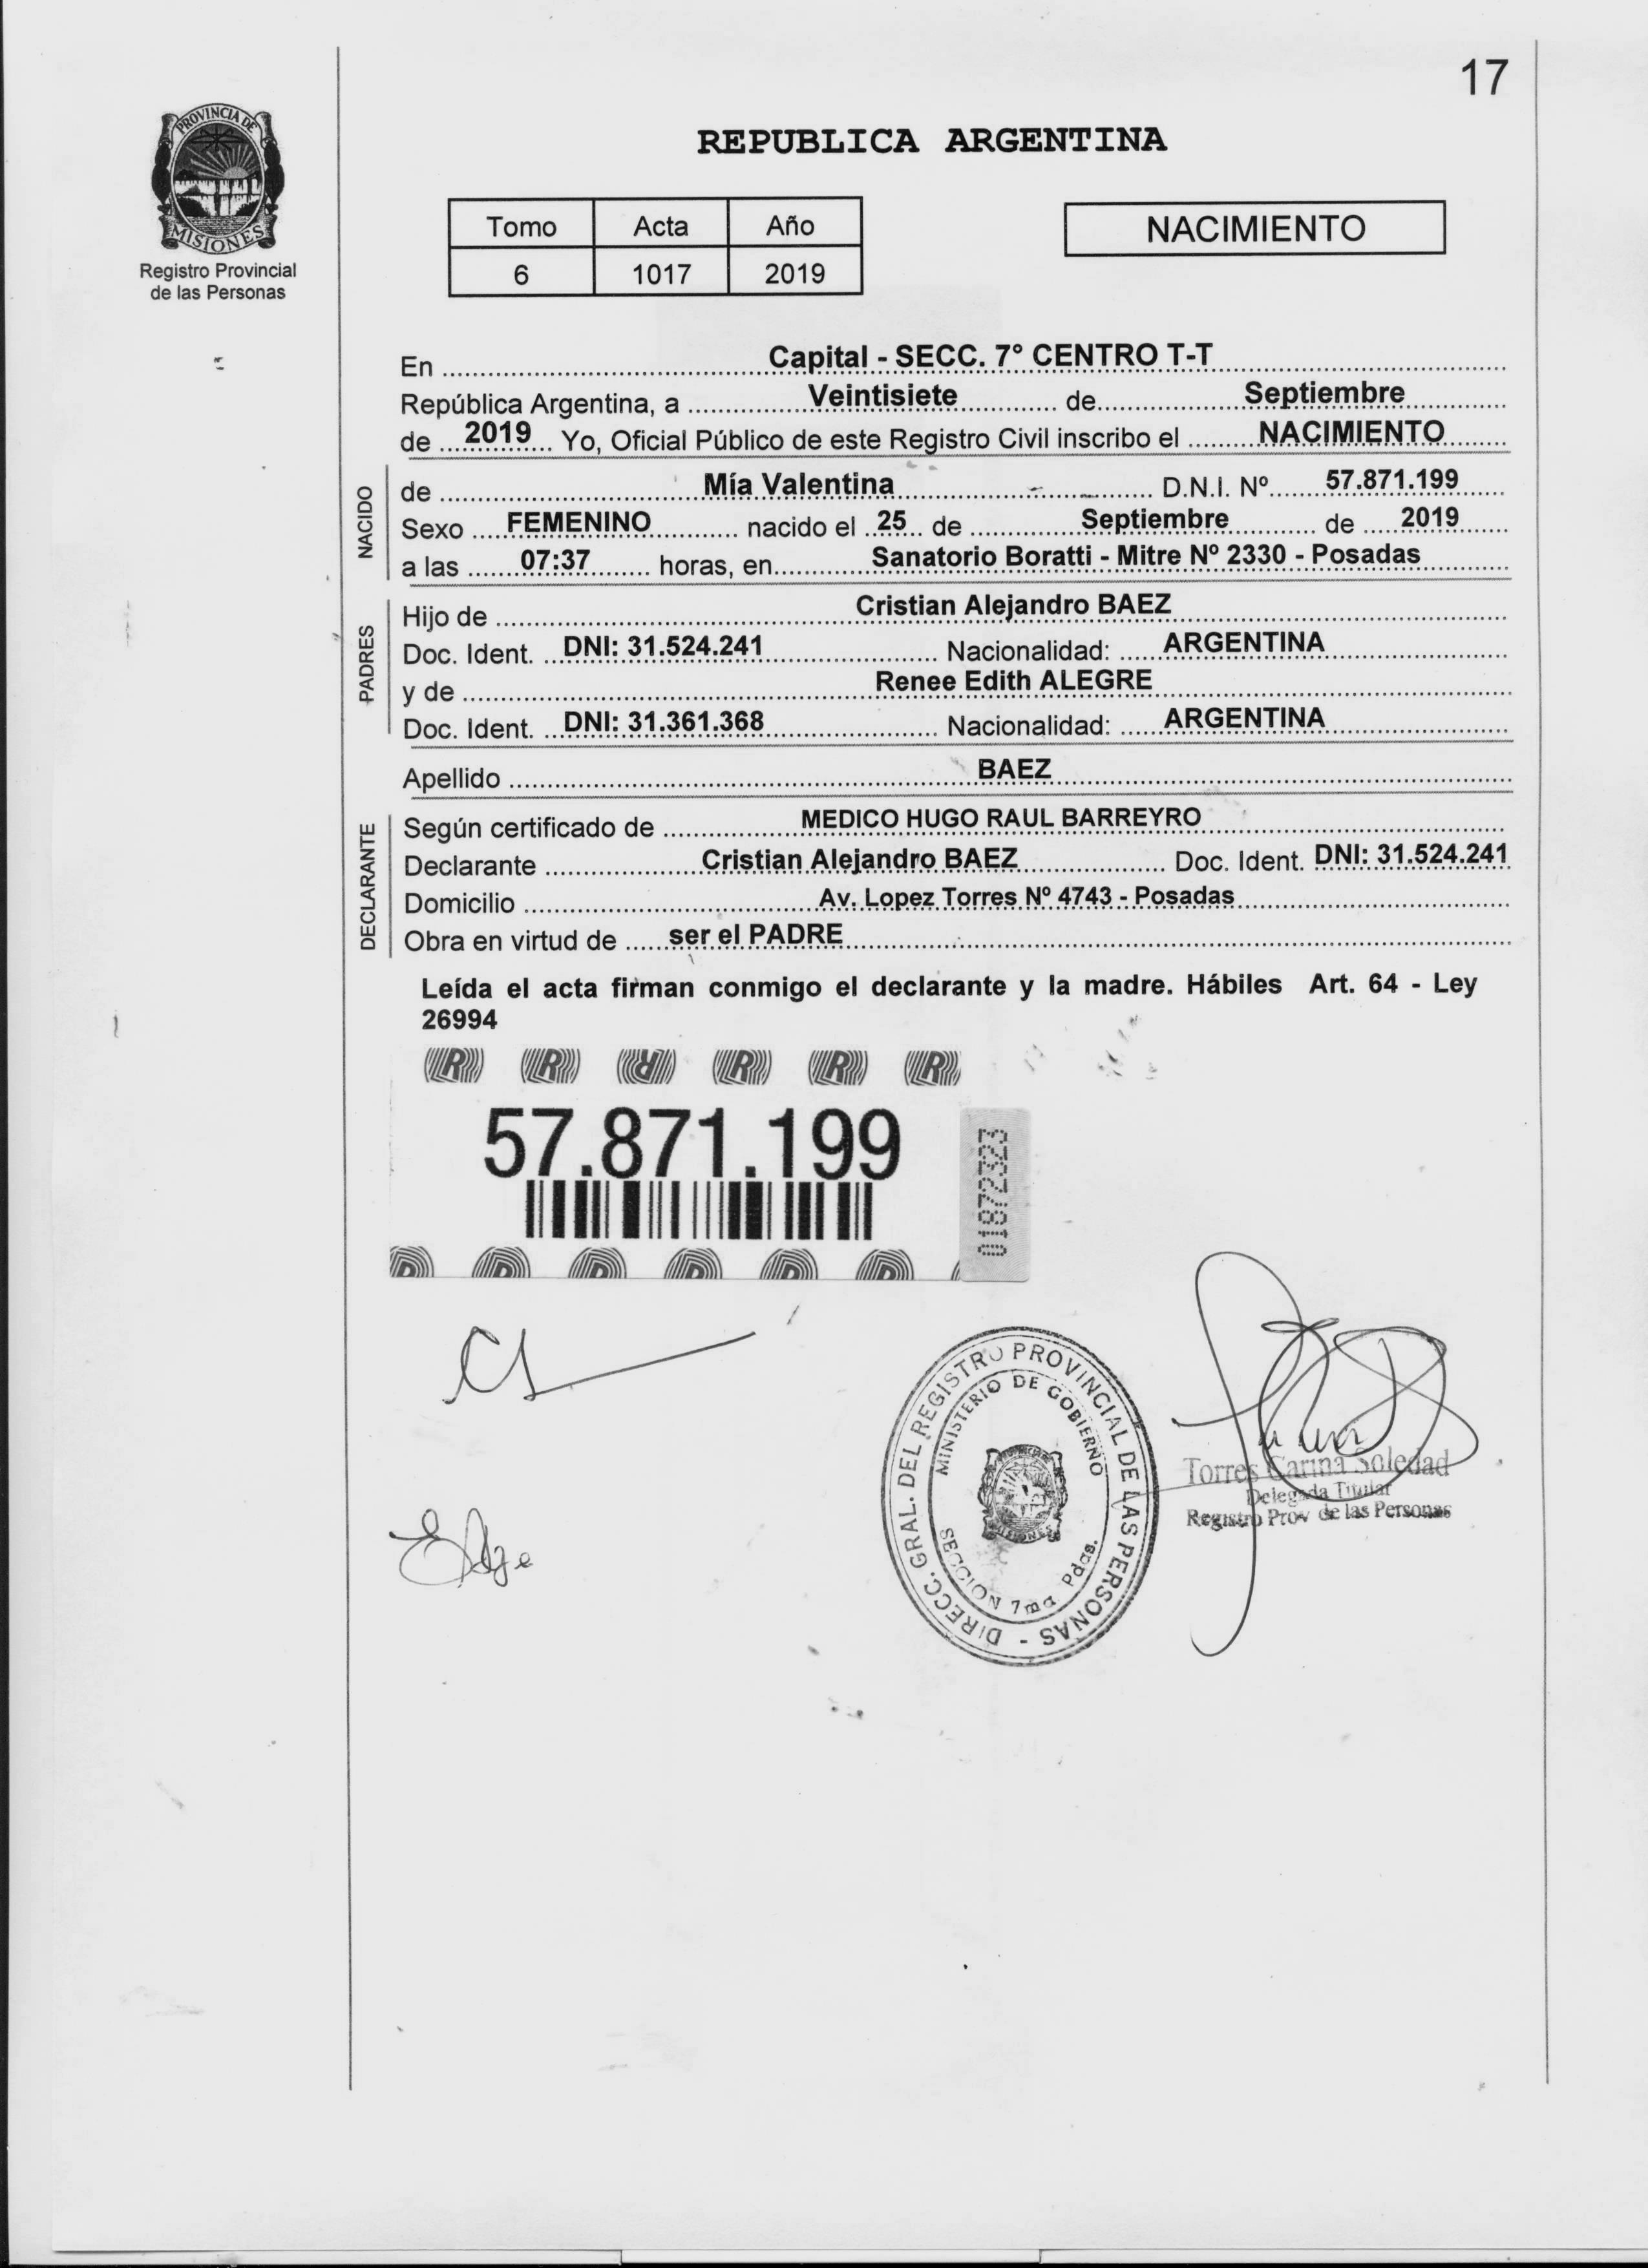 17
PROVINCIA DE
MISIONES
Registro Provincial
de las Personas
REPUBLICA ARGENTINA
Tomo Acta Año
6 1017 2019
NACIMIENTO
En Capital - SECC. 7° CENTRO T-T
República Argentina, a Veintisiete de Septiembre
de 2019 Yo, Oficial Público de este Registro Civil inscribo el NACIMIENTO
NACIDO
de Mía Valentina D.N.I. Nº 57.871.199
Sexo FEMENINO nacido el 25 de Septiembre de 2019
a las 07:37 horas, en Sanatorio Boratti - Mitre Nº 2330 - Posadas
PADRES
Hijo de Cristian Alejandro BAEZ
Doc. Ident. DNI: 31.524.241 Nacionalidad: ARGENTINA
y de Renee Edith ALEGRE
Doc. Ident. DNI: 31.361.368 Nacionalidad: ARGENTINA
Apellido BAEZ
DECLARANTE
Según certificado de MEDICO HUGO RAUL BARREYRO
Declarante Cristian Alejandro BAEZ Doc. Ident. DNI: 31.524.241
Domicilio Av. Lopez Torres Nº 4743 - Posadas
Obra en virtud de ser el PADRE
Leída el acta firman conmigo el declarante y la madre. Hábiles Art. 64 - Ley
26994
57.871.199
01872323
DIRECC. GRAL. DEL REGISTRO PROVINCIAL DE LAS PERSONAS -
MINISTERIO DE GOBIERNO
SECCION 7ma Pdas.
Torres Carina Soledad
Delegada Titular
Registro Prov de las Personas